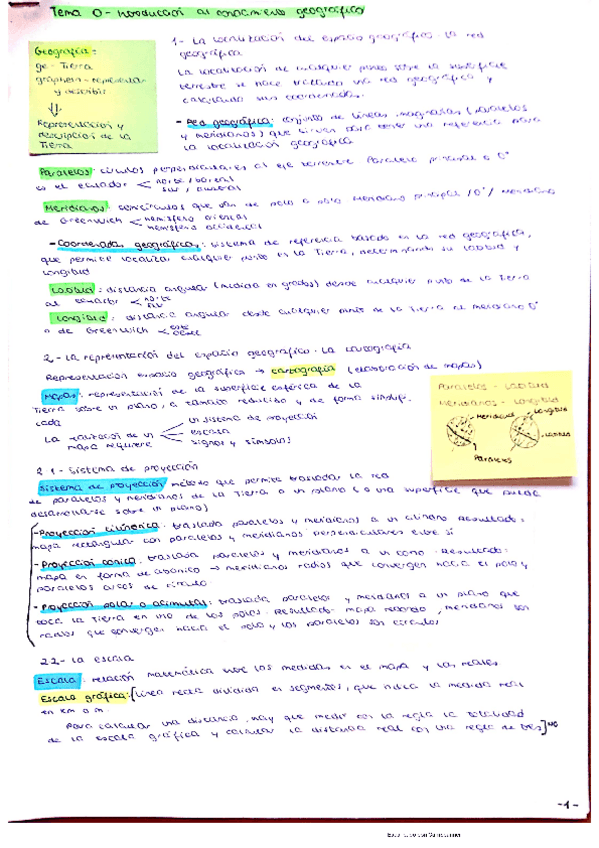 Tema 0 - Introducción al conocimiento geográfico
Geografía:
ge - Tierra
graphein - representar
y describir
Representación y
descripción de la
Tierra
1 - La localización del espacio geográfico. La red
geográfica
La localización de cualquier punto sobre la superficie
terrestre se hace trazando una red geográfica y
calculando sus coordenadas.
- Red geográfica: conjunto de líneas imaginarias (paralelos
y meridianos) que sirven para tener una referencia para
la localización geográfica
Paralelos: círculos perpendiculares al eje terrestre. Paralelo principal o 0°
es el ecuador < norte / boreal
sur / austral
Meridianos: semicírculos que van de polo a polo. Meridiano principal / 0° / meridiano
de Greenwich < hemisferio oriental
hemisferio occidental
- Coordenadas geográficas: sistema de referencia basado en la red geográfica,
que permite localizar cualquier punto en la Tierra, determinando su latitud y
longitud
Latitud: distancia angular (medida en grados) desde cualquier punto de la Tierra
al ecuador < norte
sur
Longitud: distancia angular desde cualquier punto de la Tierra al meridiano 0°
o de Greenwich < este
oeste
2 - La representación del espacio geográfico. La cartografía
Representación espacio geográfico → cartografía (elaboración de mapas)
Mapas: representación de la superficie esférica de la
Tierra sobre un plano, a tamaño reducido y de forma simplifi-
cada
La realización de un
mapa requiere
un sistema de proyección
escala
signos y símbolos
Paralelos - Latitud
Meridianos - Longitud
Meridianos
Longitud
Latitud
Paralelos
2.1 - Sistema de proyección
Sistema de proyección: método que permite trasladar la red
de paralelos y meridianos de la Tierra a un plano (o a una superficie que pueda
desarrollarse sobre un plano)
- Proyección cilíndrica: traslada paralelos y meridianos a un cilindro. Resultado:
mapa rectangular con paralelos y meridianos perpendiculares entre sí
- Proyección cónica: traslada paralelos y meridianos a un cono. Resultado:
mapa en forma de abanico → meridianos radios que convergen hacia el polo y
paralelos arcos de círculo
- Proyección polar o acimutal: traslada paralelos y meridianos a un plano que
toca la Tierra en uno de los polos. Resultado: mapa redondo, meridianos son
radios que convergen hacia el polo y los paralelos son círculos
2.2 - La escala
Escala: relación matemática entre las medidas en el mapa y las reales
Escala gráfica: [línea recta dividida en segmentos, que indica la medida real
en km o m.
Para calcular una distancia, hay que medir con la regla la totalidad
de la escala gráfica y calcular la distancia real con una regla de tres]
-1-
Escaneado con CamScanner